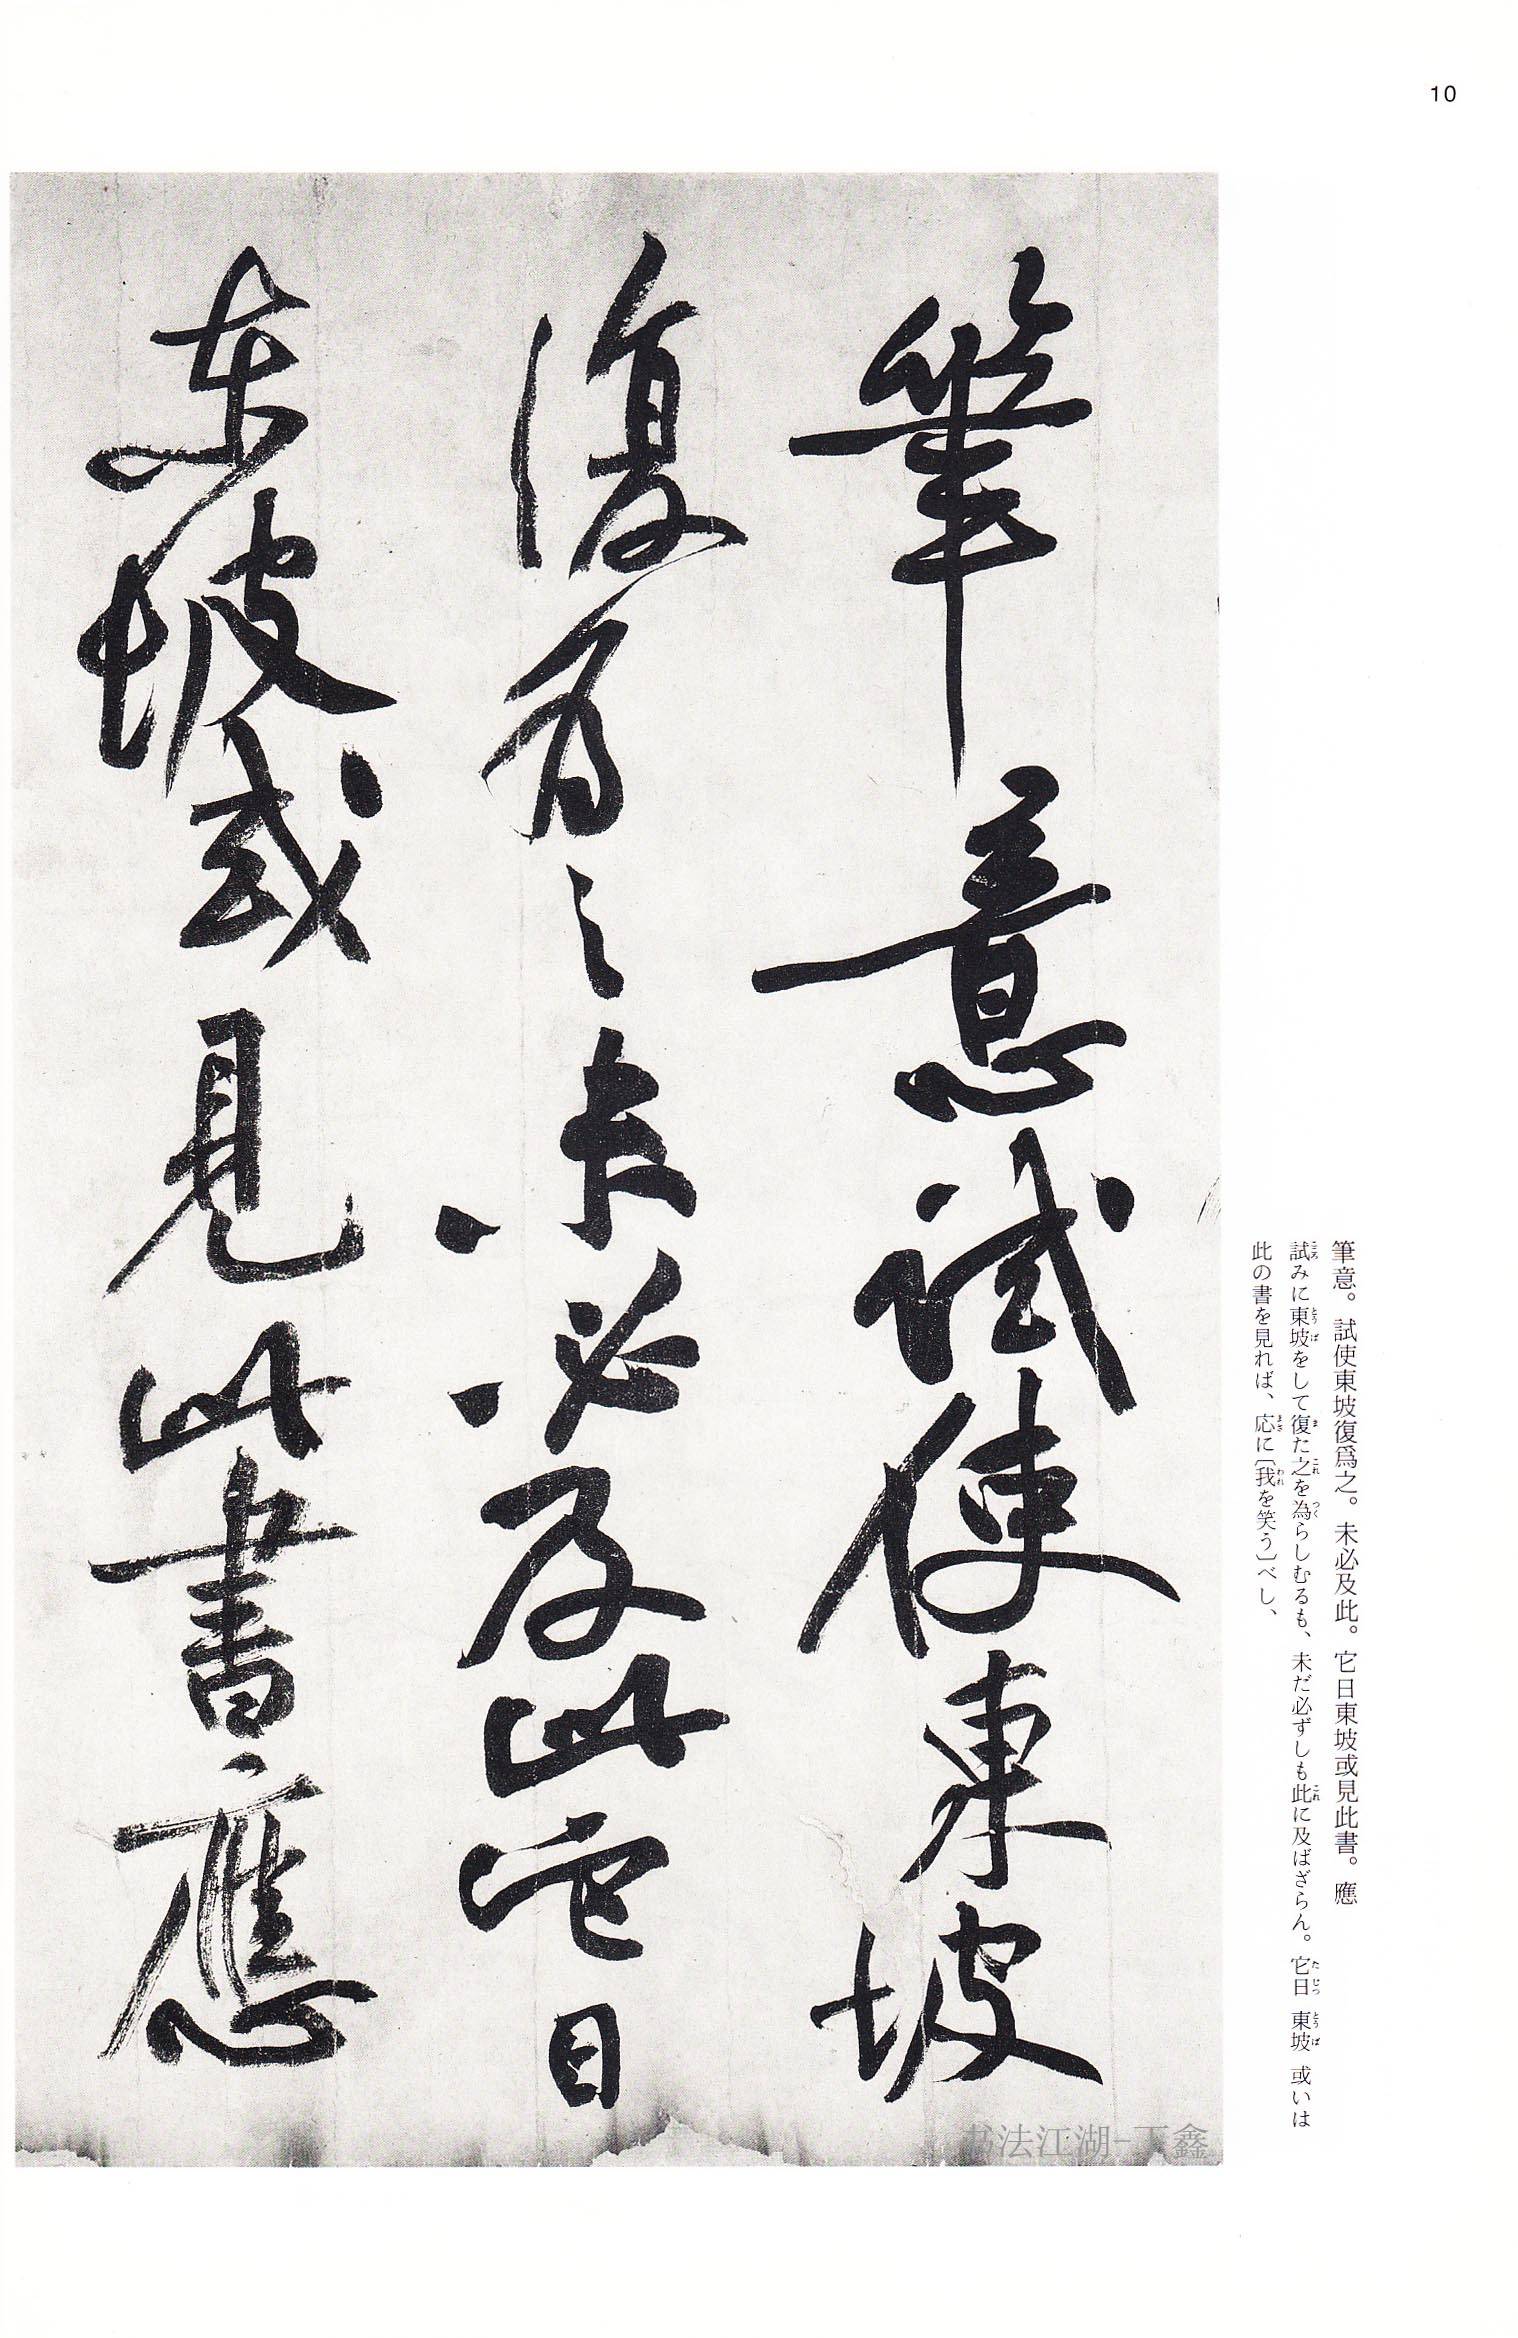 10
筆意試使東坡
復為之未必及此它日
東坡或見此書應
筆意。試使東坡復爲之。未必及此。它日東坡或見此書。應
試みに東坡をして復た之を為らしむるも、未だ必ずしも此に及ばざらん。它日 東坡 或いは
此の書を見れば、応に〔我を笑う〕べし、
书法江湖-丁鑫